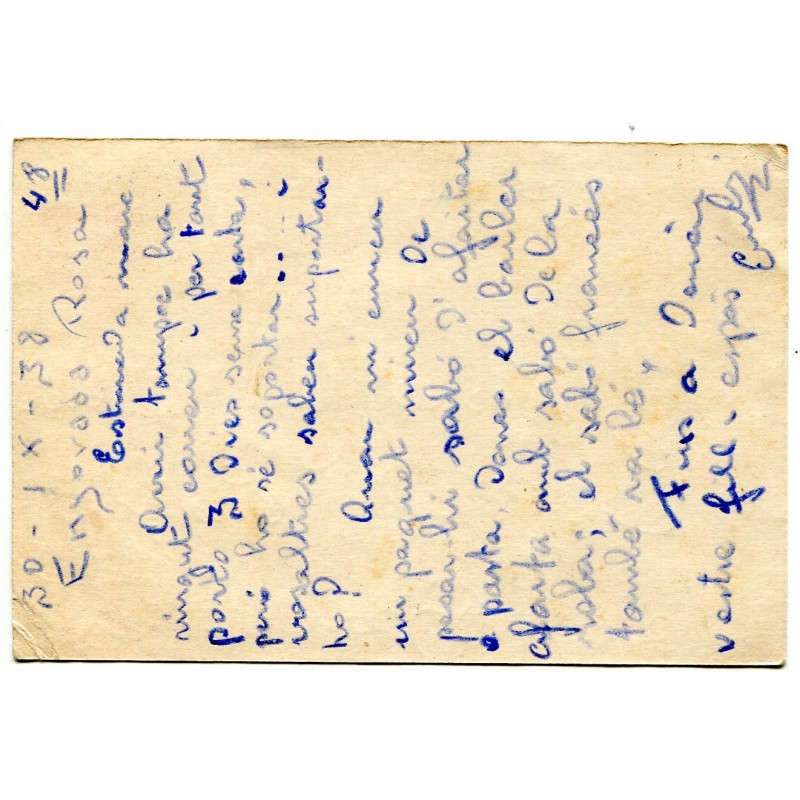 30-IX-38 48
Enyorada Rosa
Estimada mare:
Avui tampoc ha
vingut correu i per tant
porto 3 dies sense carta,
però ho sé soportar..... i
vosaltres sabeu suportar-
ho?
Quan m'envieu
un paquet mireu de
posar-hi sabó d'afaitar
o pasta, doncs el barber
afaita amb sabó de la
roba; el sabó francés
també va bé,
Fins a demà,
vestre fill i espòs